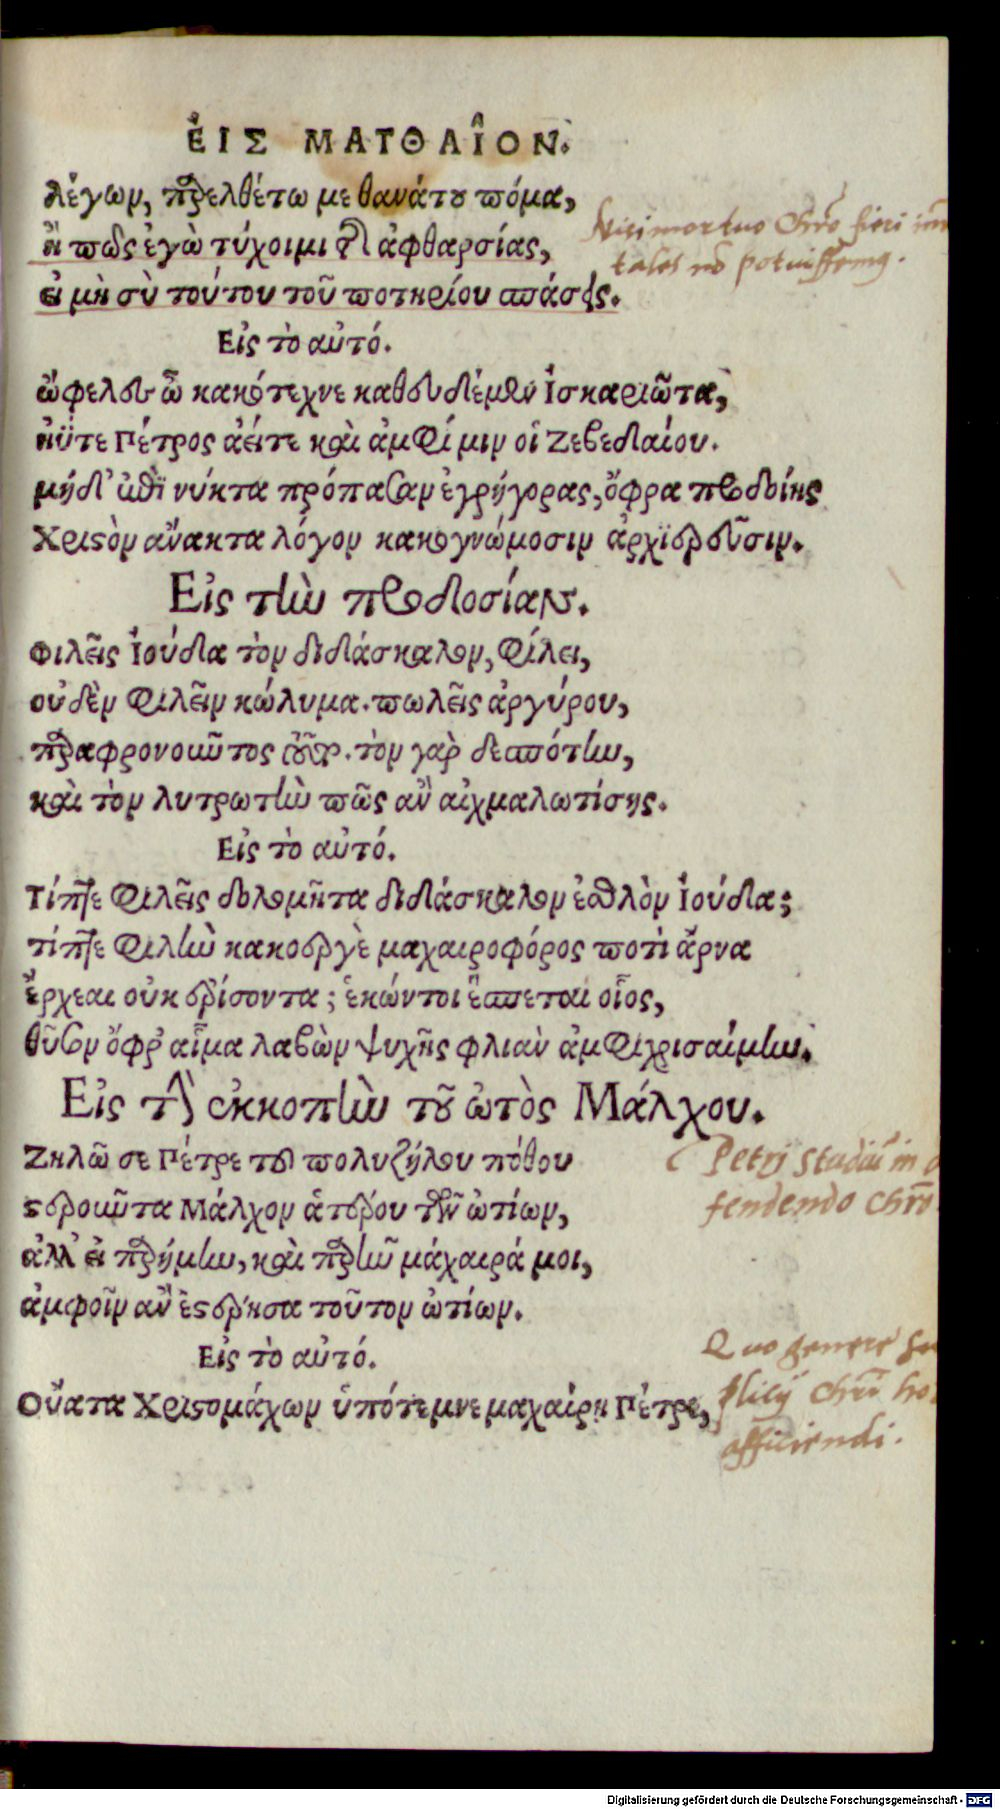 ἘΙΣ ΜΑΤΘΑΙ͂ΟΝ.
λέγων, παρελθέτω με θανάτου πόμα,
ἢ πῶς ἐγὼ τύχοιμι τῆς ἀφθαρσίας,
εἰ μὴ σὺ τούτου τοῦ ποτηρίου σπάσεις.
Εἰς τὸ αὐτό.
ὤφελον ὦ κακότεχνε καθευδέμεναι Ἰσκαριῶτα,
ἠΰτε Πέτρος ἀεί τε καὶ ἀμφί μιν οἱ Ζεβεδαίου.
μήδ' ὧδε νύκτα πρόπασαν ἐγρήγορας, ὄφρα προδοίης
Χριστὸν ἄνακτα λόγον κακογνώμοσιν ἀρχιερεῦσιν.
Εἰς τὴν προδοσίαν.
Φιλεῖς Ἰούδα τὸν διδάσκαλον, φίλει,
οὐδὲν φιλεῖν κώλυμα. πωλεῖς ἀργύρου,
παραφρονοῦντος ἔργον. τὸν γὰρ δεσπότην,
καὶ τὸν λυτρωτὴν πῶς ἂν αἰχμαλωτίσῃς.
Εἰς τὸ αὐτό.
Τίπτε φιλεῖς δολομῆτα διδάσκαλον ἐσθλὸν Ἰούδα;
τίπτε φίλην κακοεργὲ μαχαιροφόρος ποτὶ ἄρνα
ἔρχεαι οὐκ ἐρίσοντα; ἑκών τοι ἕσπεται οἶος,
θῦσον ὄφρ' αἷμα λαβὼν ψυχῆς φλιὰν ἀμφιχρισαίμην.
Εἰς τὴν ἐκκοπὴν τοῦ ὠτὸς Μάλχου.
Ζηλῶ σε Πέτρε τοῦ πολυζήλου πόθου
στεροῦντα Μάλχον ἁτέρου τῶν ὠτίων,
ἀλλ' εἰ παρήμην, καὶ παρῆν μάχαιρά μοι,
ἀμφοῖν ἂν ἐστέρησα τοῦτον ὠτίων.
Εἰς τὸ αὐτό.
Οὔατα Χριστομάχων ὑπότεμνε μαχαίρῃ Πέτρε,
Nisi mortuo Chro fieri im
tales nō potuissemus.
Petri Studiū in
fendendo Chro
Quo genere
plicij Chri ho
afficiendi.
Digitalisierung gefördert durch die Deutsche Forschungsgemeinschaft - DFG